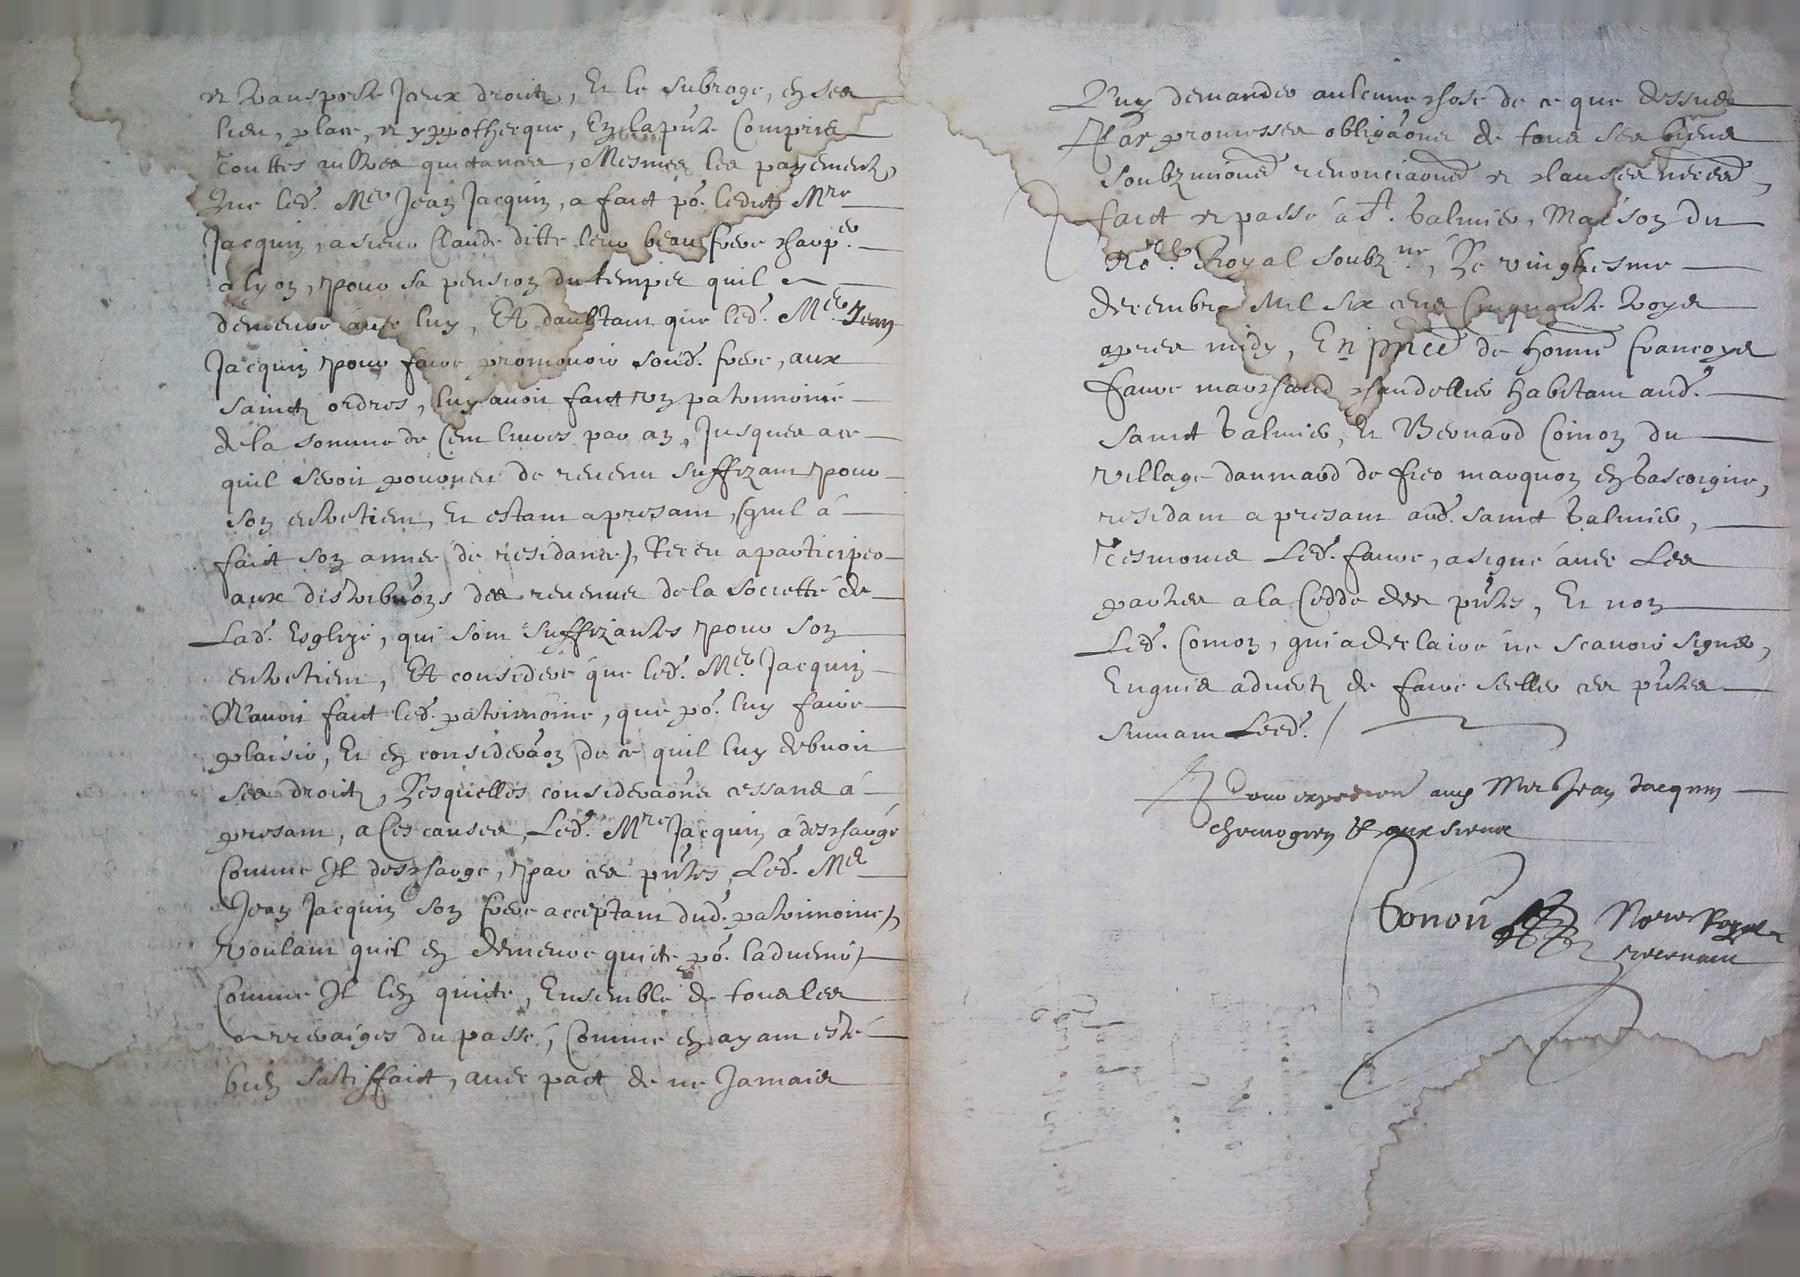 et transporte iceux droitz, Et le subroge, en ses
lieu, place, et yppothecque, En la pñte Compris
touttes aultres quictances, Mesmes les payementz,
Que led. Mre Jean Jacquin, a faict po. ledict Mre
Jacquin, a sieur Claude ditte leur beau frere
a lyon, pour sa pension du temps quil a
demeure avec luy, Et daultant que led. Mre Jean
Jacquin pour faire promouvoir sond. frere, aux
sainctz ordres, luy avoit faict un patrimoine
de la somme de Cent livres par an, Jusques a ce
quil seroit pourveu de revenu suffizant pour
son entretien, Et estant a presant, (quil a
faict son annee de residance), Receu a participer
aux distributons des revenus de la societté de
Lad. Esglize, qui sont suffizantes pour son
entretien, Et considere que led. Mre Jacquin
N'avoit faict led. patrimoine, que po. luy faire
plaisir, Et en consideraon de ce quil luy debvoit
ses droitz, Lesquelles consideraons cessans a
presant, a Ces causes, Led. Mre Jacquin a descharge
Comme Il descharge, par ces pñtes, Led. Mre
Jean Jacquin son frere acceptant dud. patrimoine,
voulant quil en demeure quicte po. ladvenir
Comme Il len quicte, Ensemble de tous les
arreraiges du passé, Comme en ayant esté
bien satisffaict, avec pact de ne Jamais
Luy demander aulcune chose de ce que dessus
Par promesses obligaons de tous ses biens
Soubzmions renonciaons et clauses neces.,
faict et passé a St. Galmier, Maison du
No.re Royal soubz.né, Le vingtiesme
decembre Mil six cens Cinquante troys
apres midy, En pñce de honn. Francoys
Faure marchand chandellier habitant aud.
Sainct Galmier, Et Bernard Comon du
village de
residant a presant aud. sainct Galmier,
Tesmoins Led. Faure, a signé avec Les
parties a la Cedde des pñtes, Et non
Led. Comon, qui a declaire ne scavoir signer,
Enquis advertz de faire seeller ces pñtes
suivant Leed. /
Pour expedition aud Mre Jean Jacquin
Not.re Royal